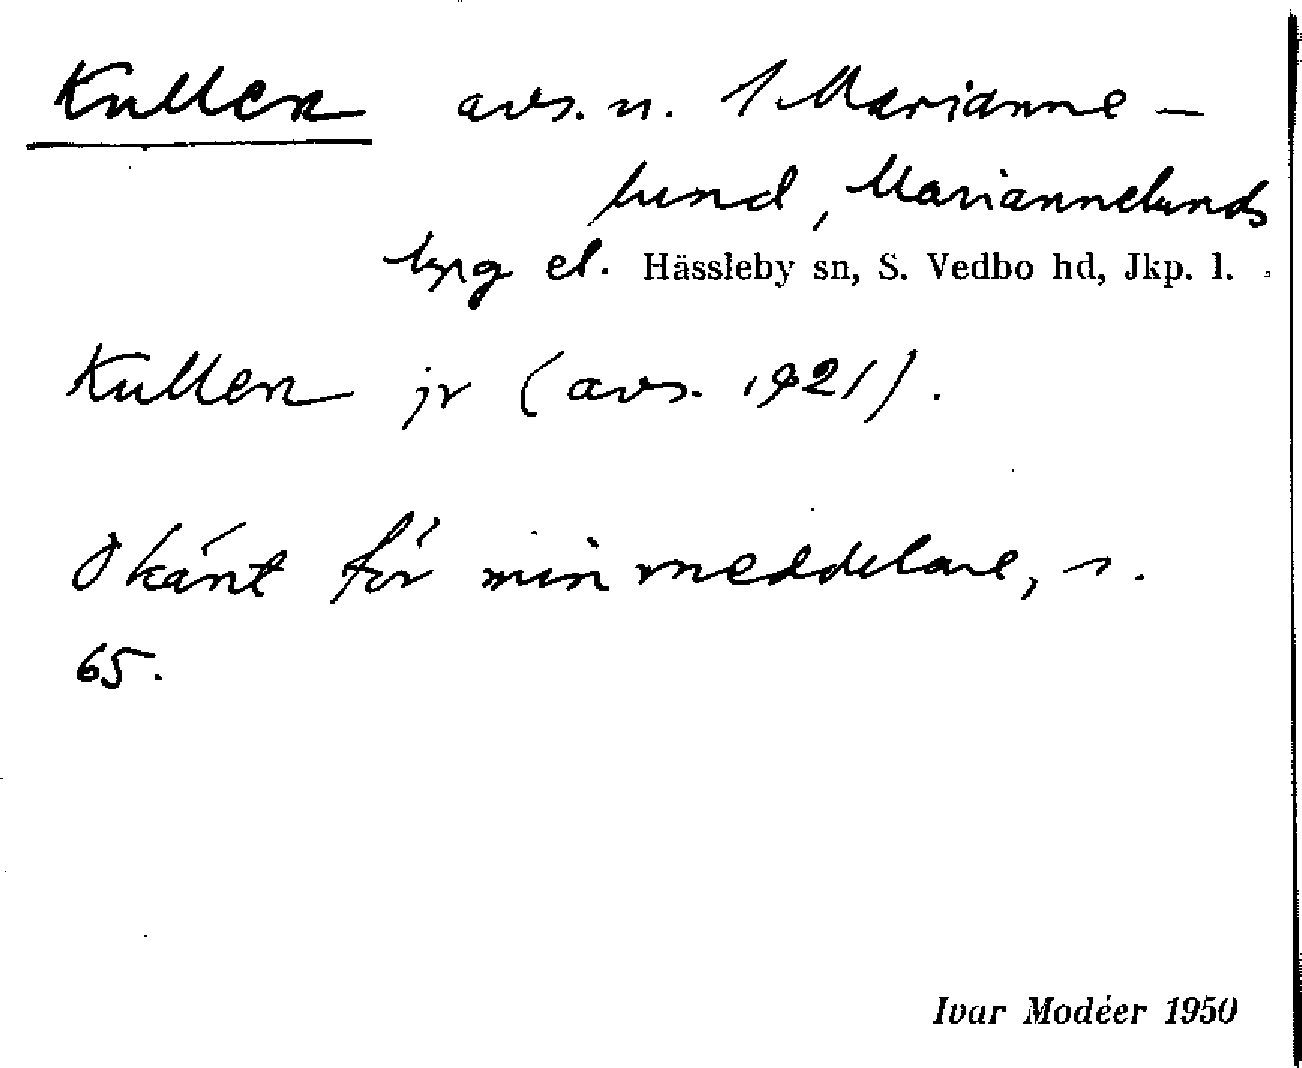 Kullen avs. u. 1 Marianne-
lund, Mariannelunds
kpg el. Hässleby sn, S. Vedbo hd, Jkp. l.
Kullen jr (avs. 1921).
Okänt för min meddelare, s.
65.
Ivar Modéer 1950